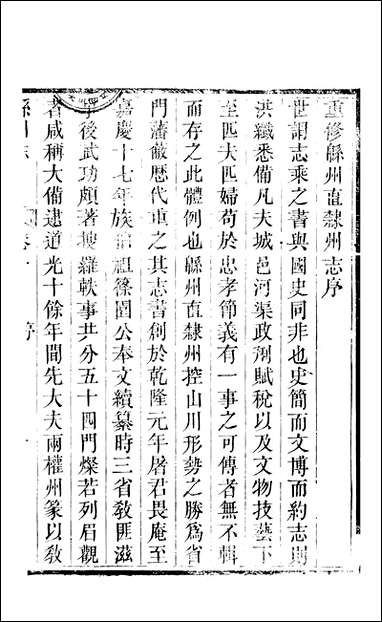 重修緜州直隸州志序
世謂志乘之書與國史同非也史簡而文博而約志則
洪纖悉備凡夫城邑河渠政刑賦稅以及文物技藝下
至匹夫匹婦苟於忠孝節義有一事之可傳者無不輯
而存之此體例也緜州直隸州控山川形勢之勝爲省
門藩蔽歷代重之其志書創於乾隆元年屠君畏庵至
嘉慶十七年族祖徐園公奉文續纂時三省敎匪滋
後武功頗著搜羅軼事共分五十四門燦若列眉觀
者咸稱大備逮道光十餘年間先大夫兩權州篆以敎
序